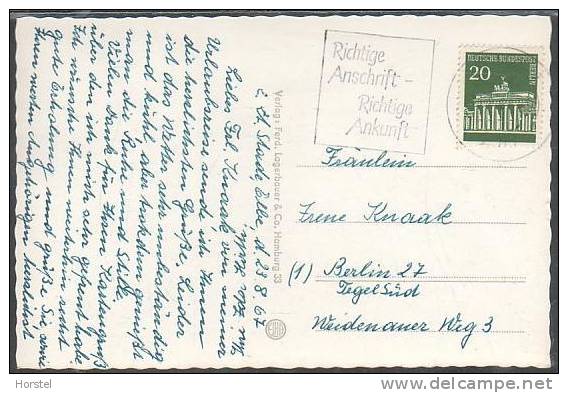 z. Zt. Stade Elbe, d. 23.8.67
Liebe Frl. Knaak! Von meiner
Urlaubsreise sende ich Ihnen
die herzlichsten Grüße. Leider
ist das Wetter sehr unbeständig
und kühl, aber trotzdem genießt
man die Ruhe und Stille.
Vielen Dank für Ihren Kartengruß
über den ich mich sehr gefreut habe.
Ich wünsche Ihnen weiterhin recht
gute Erholung und grüße Sie, wie
Ihren werten Angehörigen herzlichst
Verlag: Ferd. Lagerbauer & Co. Hamburg 33
Richtige
Anschrift -
Richtige
Ankunft
DEUTSCHE BUNDESPOST
BERLIN
20
Fräulein
Irene Knaak
(1) Berlin 27
Tegel Süd
Weidenauer Weg 3
Horstel
www.delcampe.net